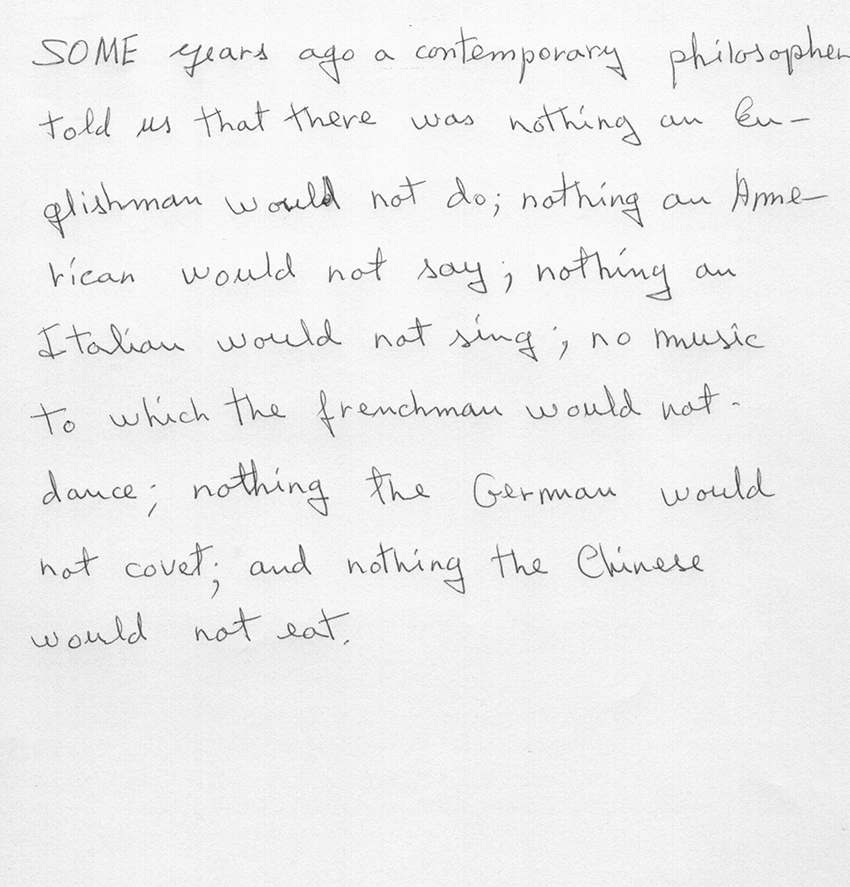 SOME years ago a contemporary philosopher
told us that there was nothing an En-
glishman would not do; nothing an Ame-
rican would not say; nothing an
Italian would not sing; no music
to which the frenchman would not-
dance; nothing the German would
not covet; and nothing the Chinese
would not eat.